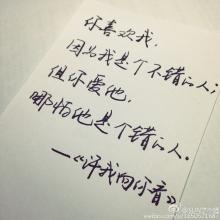 你喜欢我，
因为我是个不错的人；
但你爱他，
哪怕他是个错的人。
—《许我向你看》